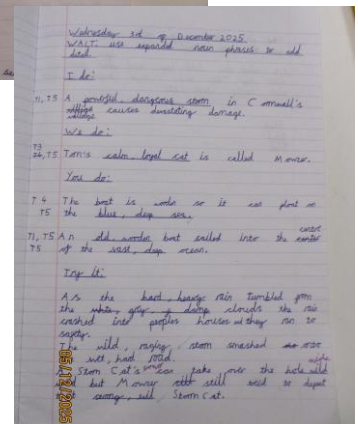 Wednesday 3rd of December 2025
WALT: use expanded noun phrases to add
detail.
I do:
T1, T5 A powerful, dangerous storm in Cornwall's
village causes devastating damage.
We do:
T3
T5 Tom's calm, loyal cat is called Mowzer.
You do:
T4 The boat is so it can float on
T5 the blue, deep sea.
T1, T5 An old, wooden boat sailed into the
T5 of the vast, deep ocean.
Try it:
As the hard, heavy rain tumbled from
the white, grey, damp clouds the rain
crashed into peoples houses as they ran to
safety.
The wild, raging storm smashed
had
A Storm Cat's can take over the hole
but Mowzer still need to
strong, Storm Cat.
05/12/2025